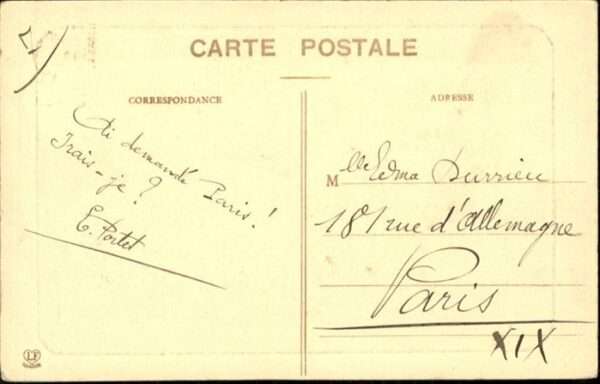 21)
CARTE POSTALE
CORRESPONDANCE
Ai demandé Paris!
Irais-je?
E. Portet
ADRESSE
Mlle Edma Durrieu
181 rue d'Allemagne
Paris
XIX